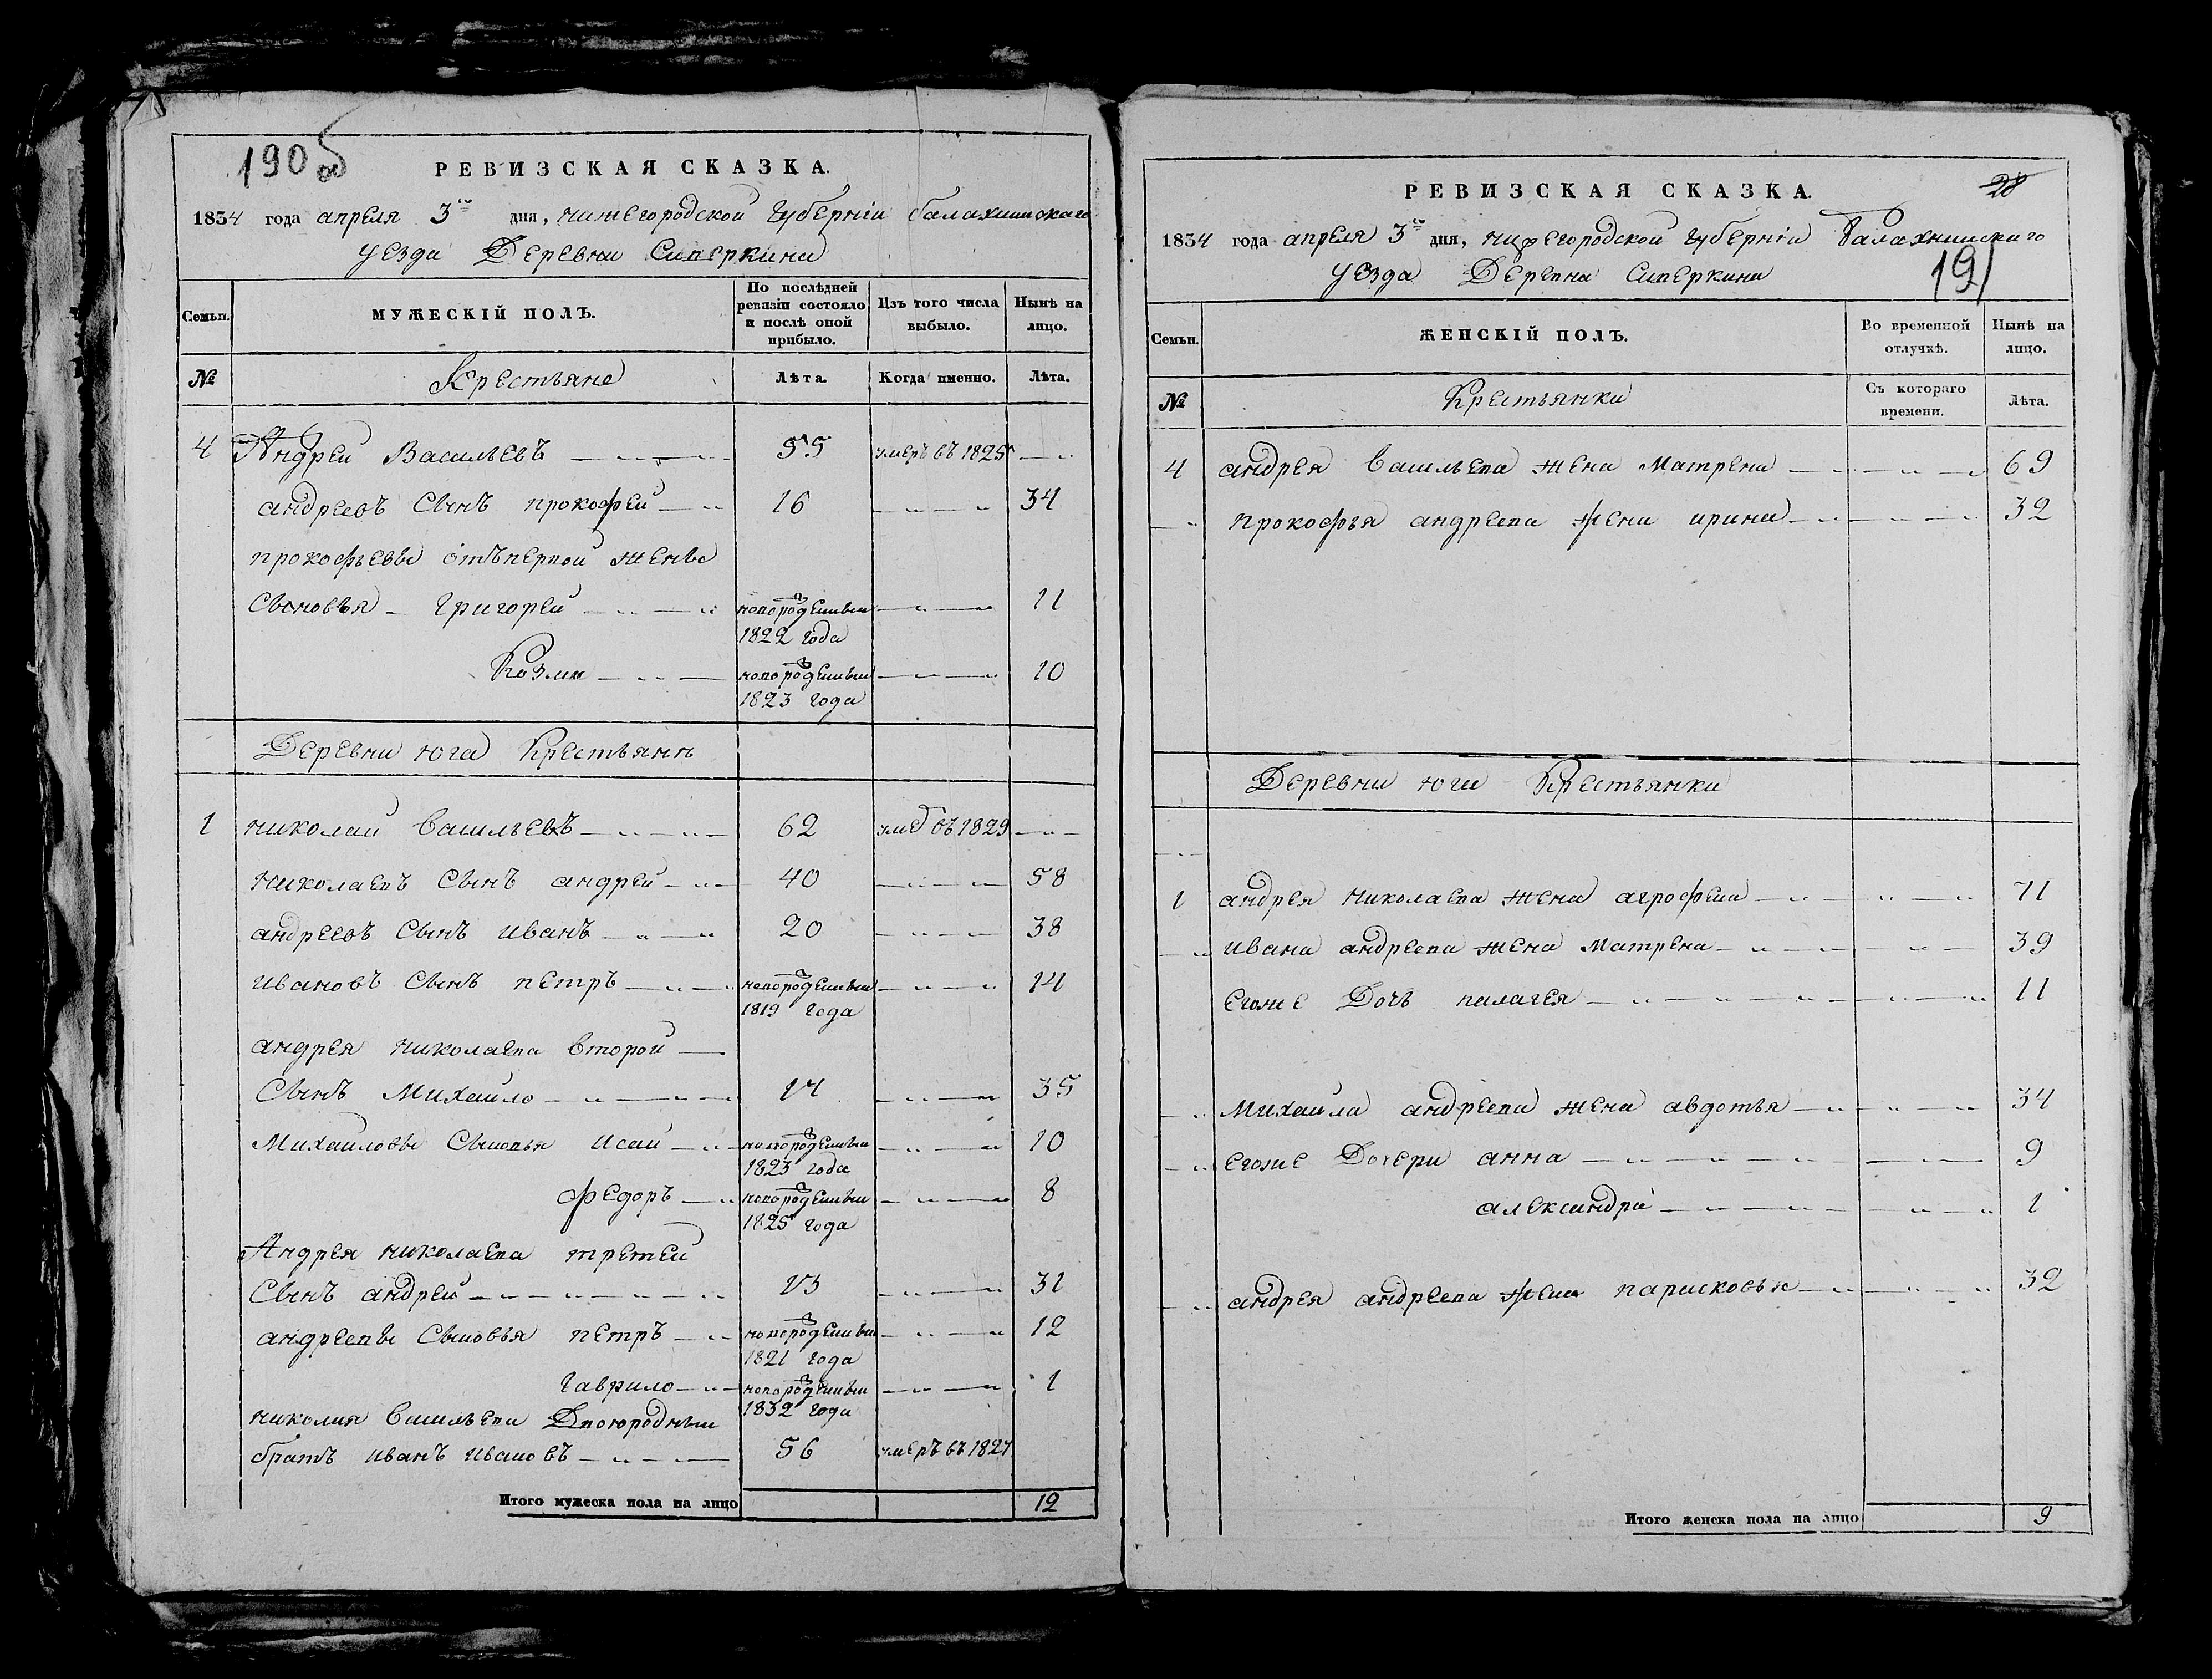 190 об
РЕВИЗСКАЯ СКАЗКА.
1834 года апреля 3го дня, нижегородской губерніи балахнинскаго
уезда Деревни Сиверкина
Семьи.
МУЖЕСКІЙ ПОЛЪ.
По послѣдней ревизіи состояло и послѣ оной прибыло.
Изъ того числа выбыло.
Нынѣ на лицо.
№
Крестьяне
Лѣта.
Когда именно.
Лѣта.
4 Андрей Васильевъ 55 умеръ въ 1825
андреевъ Сынъ прокофей 16 34
прокофьевы отъ первой жены
Сыновья Григорей новорожденный 11
1822 года
Козма новорожденный 10
1823 года
Деревни юга Крестьяне
1 николай Васильевъ 62 умер въ 1829
николаевъ Сынъ андрей 40 58
андреевъ Сынъ иванъ 20 38
ивановъ Сынъ петръ новорожденный 14
1819 года
андрея николаева второй
Сынъ Михайло 17 35
Михайловы Сыновья Исай новорожденный 10
1823 года
федоръ новорожденный 8
1825 года
Андрея николаева третей
Сынъ андрей 13 31
андреевы Сыновья петръ новорожденный 12
1821 года
гаврило новорожденный 1
1832 года
николая Васильева Двоюродный
братъ иванъ ивановъ 56 умеръ въ 1827
Итого мужеска пола на лицо 12
28
РЕВИЗСКАЯ СКАЗКА.
1834 года апреля 3го дня, нижегородской губерніи Балахнинскаго
уезда Деревни Сиверкина
191
Семьи.
ЖЕНСКІЙ ПОЛЪ.
Во временной отлучкѣ.
Нынѣ на лицо.
№
Крестьянки
Съ котораго времени.
Лѣта.
4 андрея Васильева жена Матрена 69
прокофья андреева жена ирина 32
Деревни юги Крестьянки
1 андрея николаева жена агрофена 71
ивана андреева жена Матрена 39
егоже Дочь пилагея 11
Михайла андреева жена авдотья 34
егоже Дочери анна 9
александра 1
андрея андреева жена парисковья 32
Итого женска пола на лицо 9